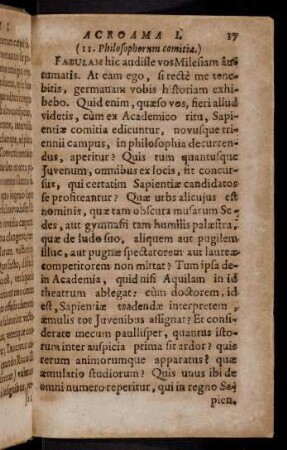 ACROAMA I. 17
(11. Philosophorum comitia.)
FABULAM hic audisse vos Milesiam
tumatis. At eam ego, si rectè me tene-
bitis, germanam vobis historiam exhi-
bebo. Quid enim, quæso vos, fieri aliud
videtis, cùm ex Academico ritu, Sapi-
entiæ comitia edicuntur, novusque tri-
ennii campus, in philosophia decurren-
dus, aperitur? Quis tum quantusque
Juvenum, omnibus ex locis, fit concur-
sus, qui certatim Sapientiæ candidatos
se profiteantur? Quæ urbs alicujus est
nominis, quæ tam obscura musarum Se-
des, aut gymnasii tam humilis palæstra,
quæ de ludo suo, aliquem aut pugilem
illuc, aut pugnæ spectatorem aut laureæ
competitorem non mittat? Tum ipsa de-
in Academia, quid nisi Aquilam in id
theatrum ablegat? cùm doctorem, id
est, Sapientiæ tradendæ interpretem,
æmulis tot Juvenibus assignat? Et consi-
derate mecum paullisper, quantus isto-
rum inter auspicia prima sit ardor? quis
rerum animorumque apparatus? quæ
æmulatio studiorum? Quis unus ibi de
omni numero reperitur, qui in regno Sa-
pien.